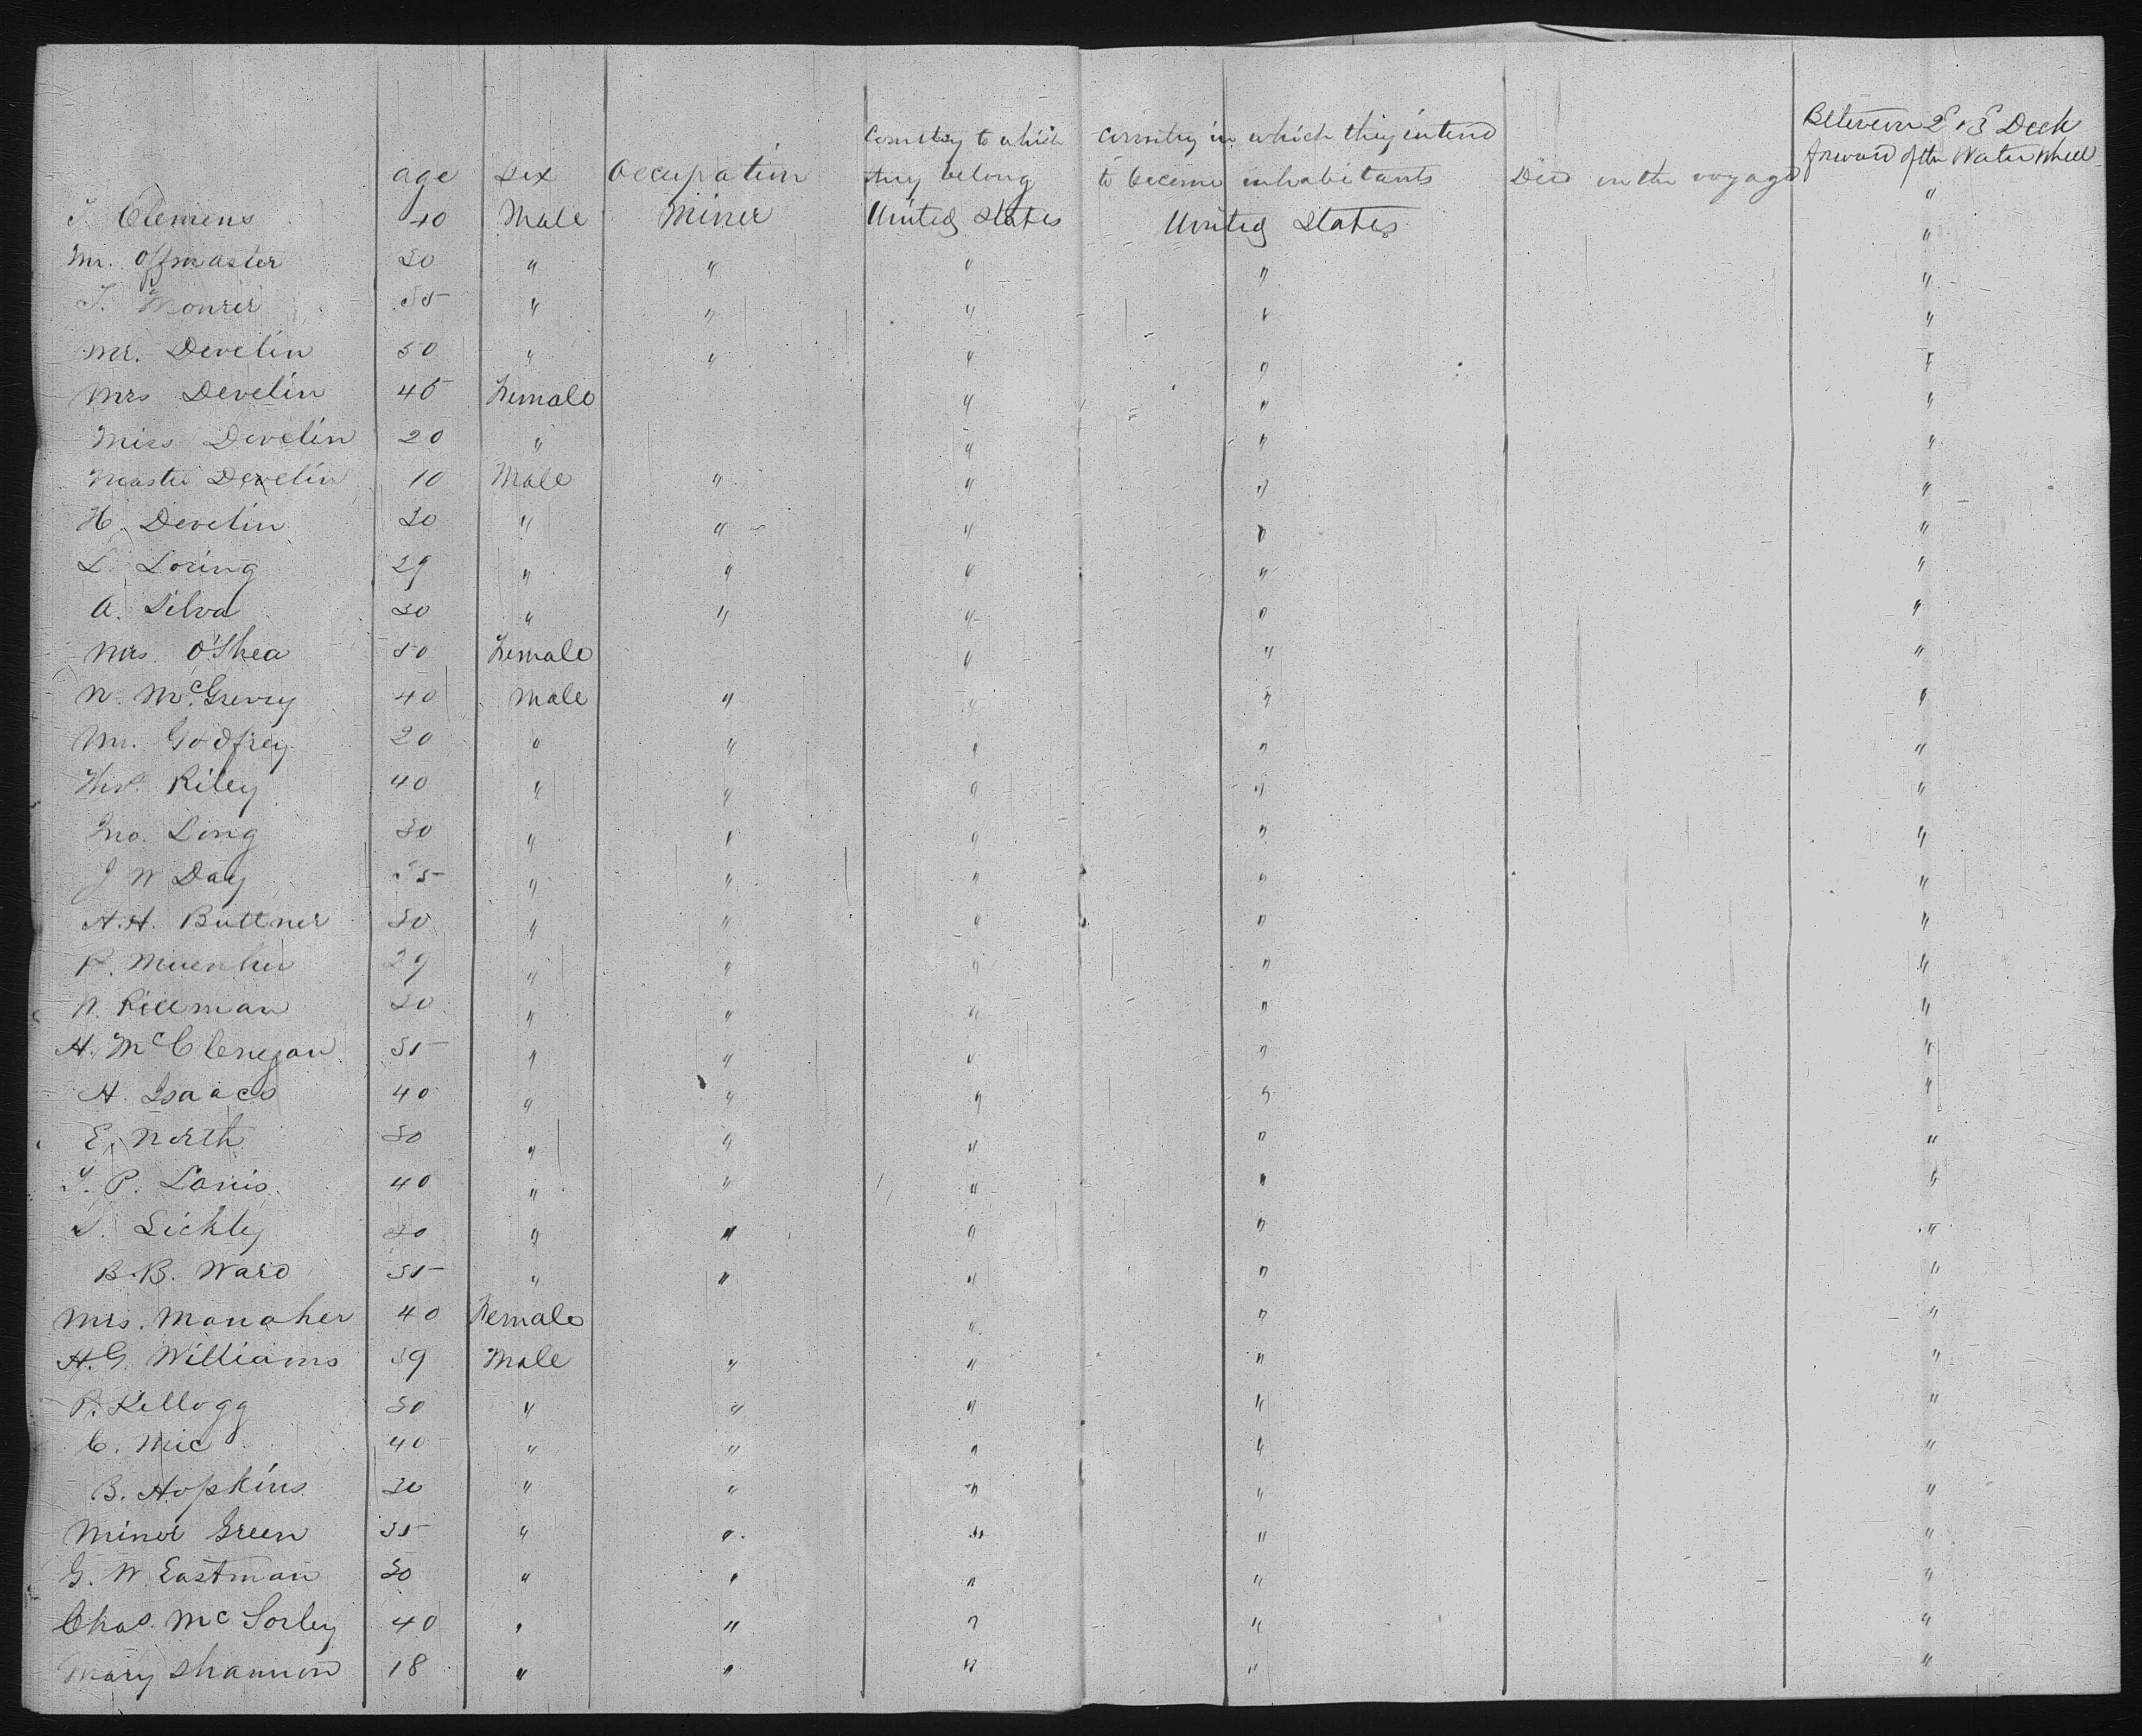 age Sex Occupation Country to which they belong Country in which they intend to become inhabitants Died on the voyage Between 2d & 3d Deck forward of the Water Wheel
Clemens 40 Male Miner United States United States "
Mr. Offmaster 30 " " " " "
Mourer 35 " " " " "
Mr. Develin 50 " " " " "
Mrs Develin 45 Female " " "
Miss Develin 20 " " " "
Master Develin 10 Male " " " "
H. Develin 30 " " " " "
L. Loring 29 " " " " "
A. Silva 30 " " " " "
Mrs. O'Shea 50 Female " " "
N. McGrevry 40 Male " " " "
Mr. Godfrey 20 " " " " "
Riley 40 " " " " "
Jno. Long 30 " " " " "
J W Day 35 " " " " "
A.H. Buttner 30 " " " " "
29 " " " " "
30 " " " " "
H. McClenegan 35 " " " " "
H. Isaacs 40 " " " " "
E. North 30 " " " " "
P. Lanis 40 " " " " "
Lickley " " " " "
B.B. Ward 35 " " " " "
Mrs. Manaher 40 Female " " "
H.G. Williams 39 Male " " " "
P. Kellogg 30 " " " " "
C. Mic 40 " " " " "
B. Hopkins 30 " " " " "
Minor Green 35 " " " " "
G. W. Eastman 30 " " " " "
Chas. McSorley 40 " " " " "
Mary Shannon 18 " " " " "